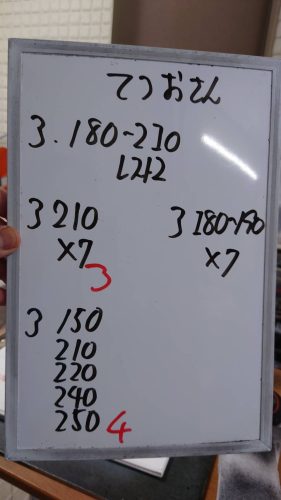 てつおさん
3.180-230
L242
3 210
×7
3
3 180-190
×7
3 150
210
220
240
250 4